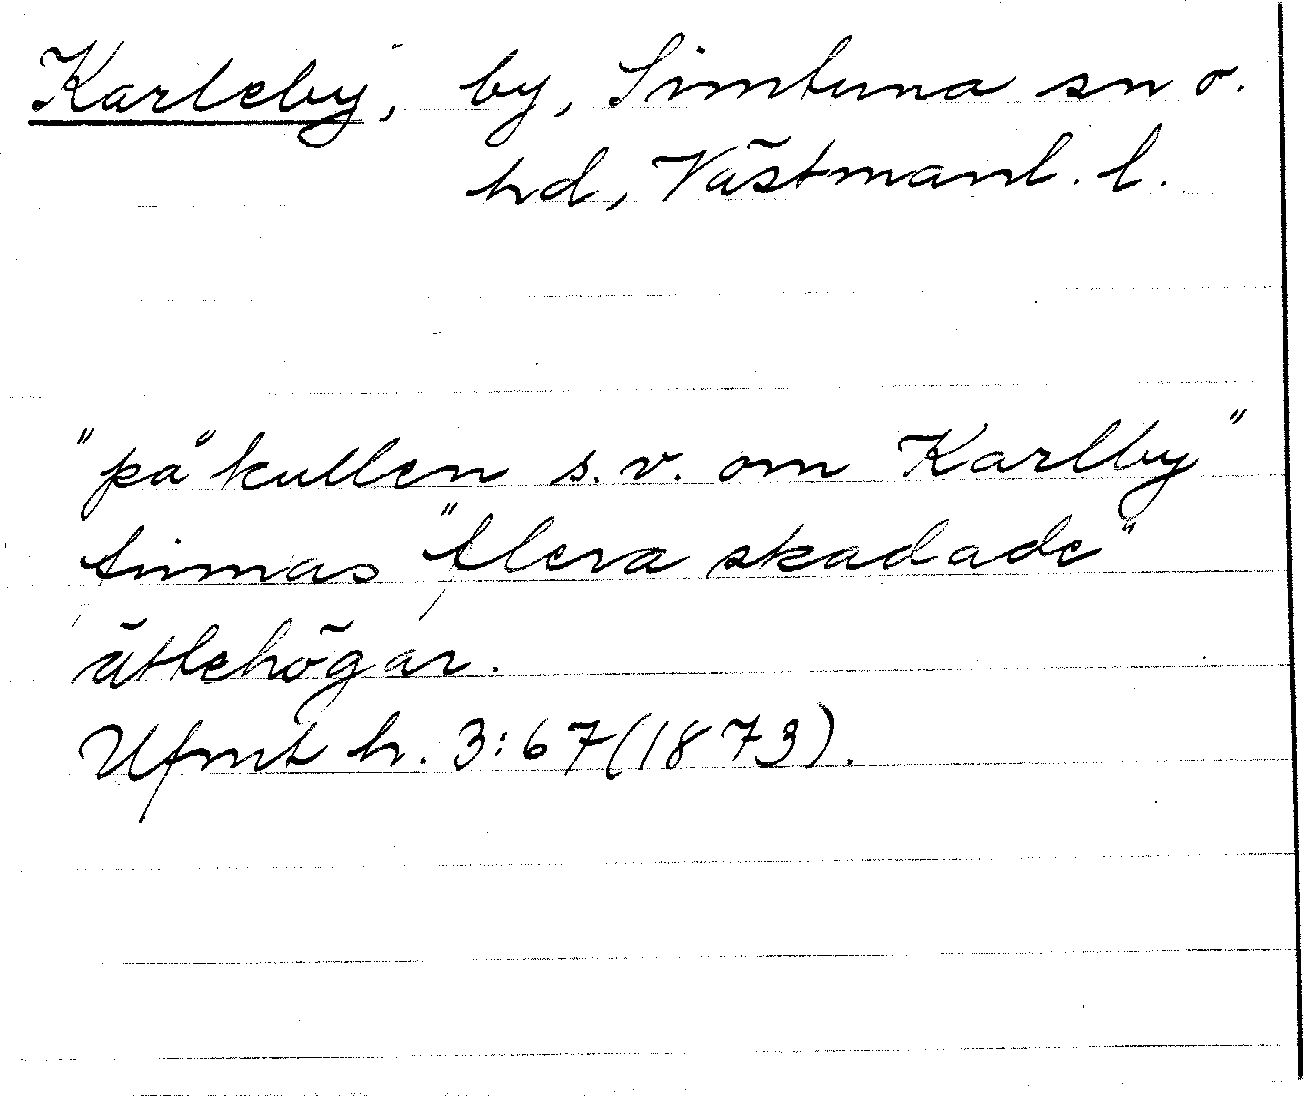 Karleby, by, Simtuna sn o.
hd, Västmanl. l.
"på kullen s.v. om Karlby"
finnas "flera skadade"
ättehögar.
Ufmt h. 3:67(1873).